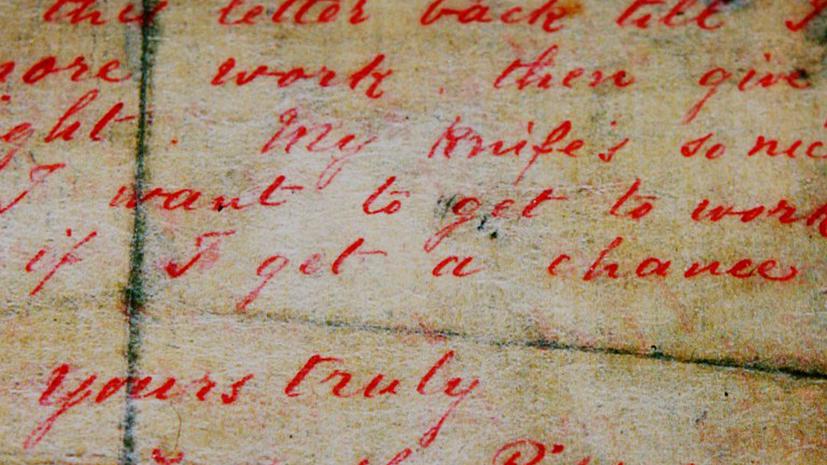 this letter back till I
more work. then give
ght. My knife's so nic
I want to get to work
if I get a chance
yours truly